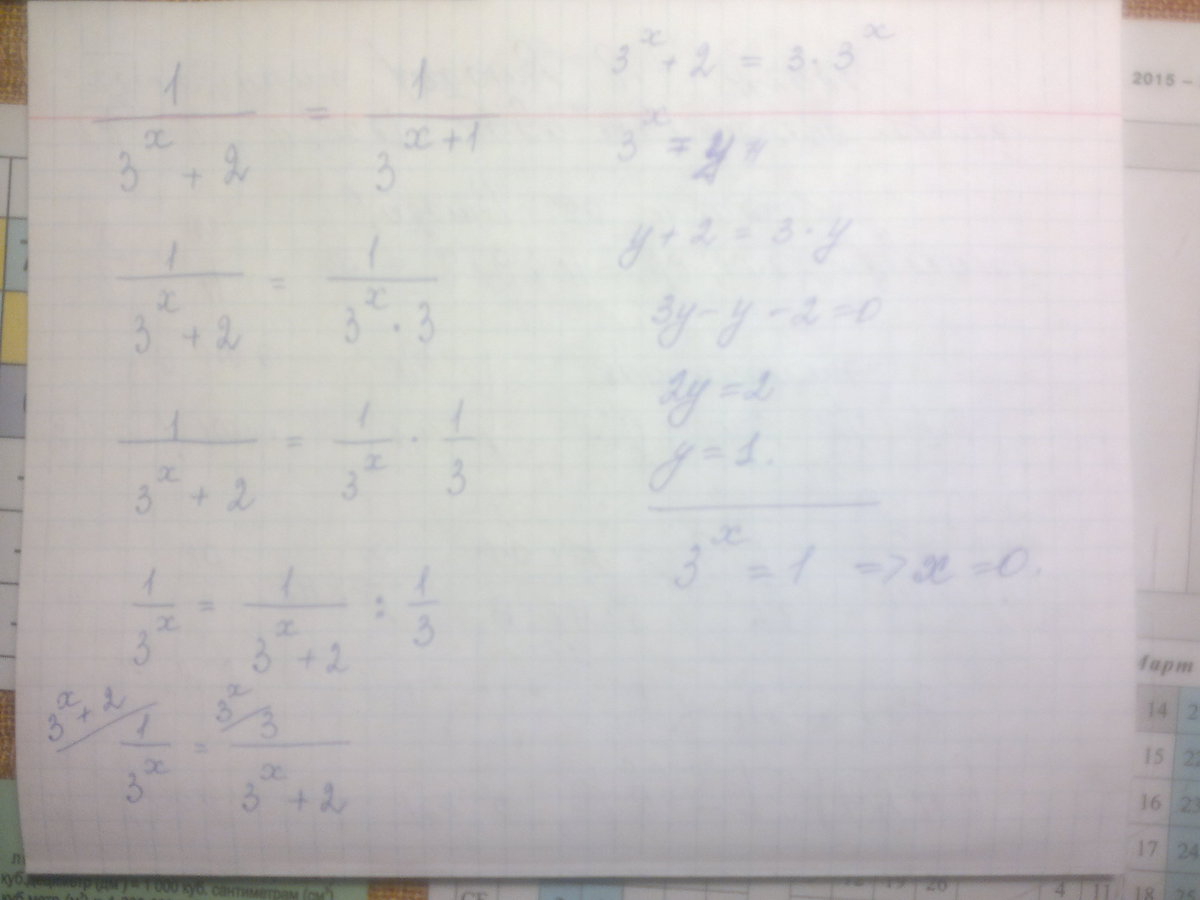 1/(3^x + 2) = 1/3^(x+1)
1/(3^x + 2) = 1/(3^x · 3)
1/(3^x + 2) = 1/3^x · 1/3
1/3^x = 1/(3^x + 2) : 1/3
3^x + 2 / 1/3^x = 3^x / 3/(3^x + 2)
3^x + 2 = 3 · 3^x
3^x = y
y + 2 = 3 · y
3y - y - 2 = 0
2y = 2
y = 1.
3^x = 1 => x = 0.
2015 –
Март
14
15 22
16 23
17 24
18 25
4 11
12 19 26
куб.дециметр (дм³) = 1 000 куб. сантиметрам (см³)